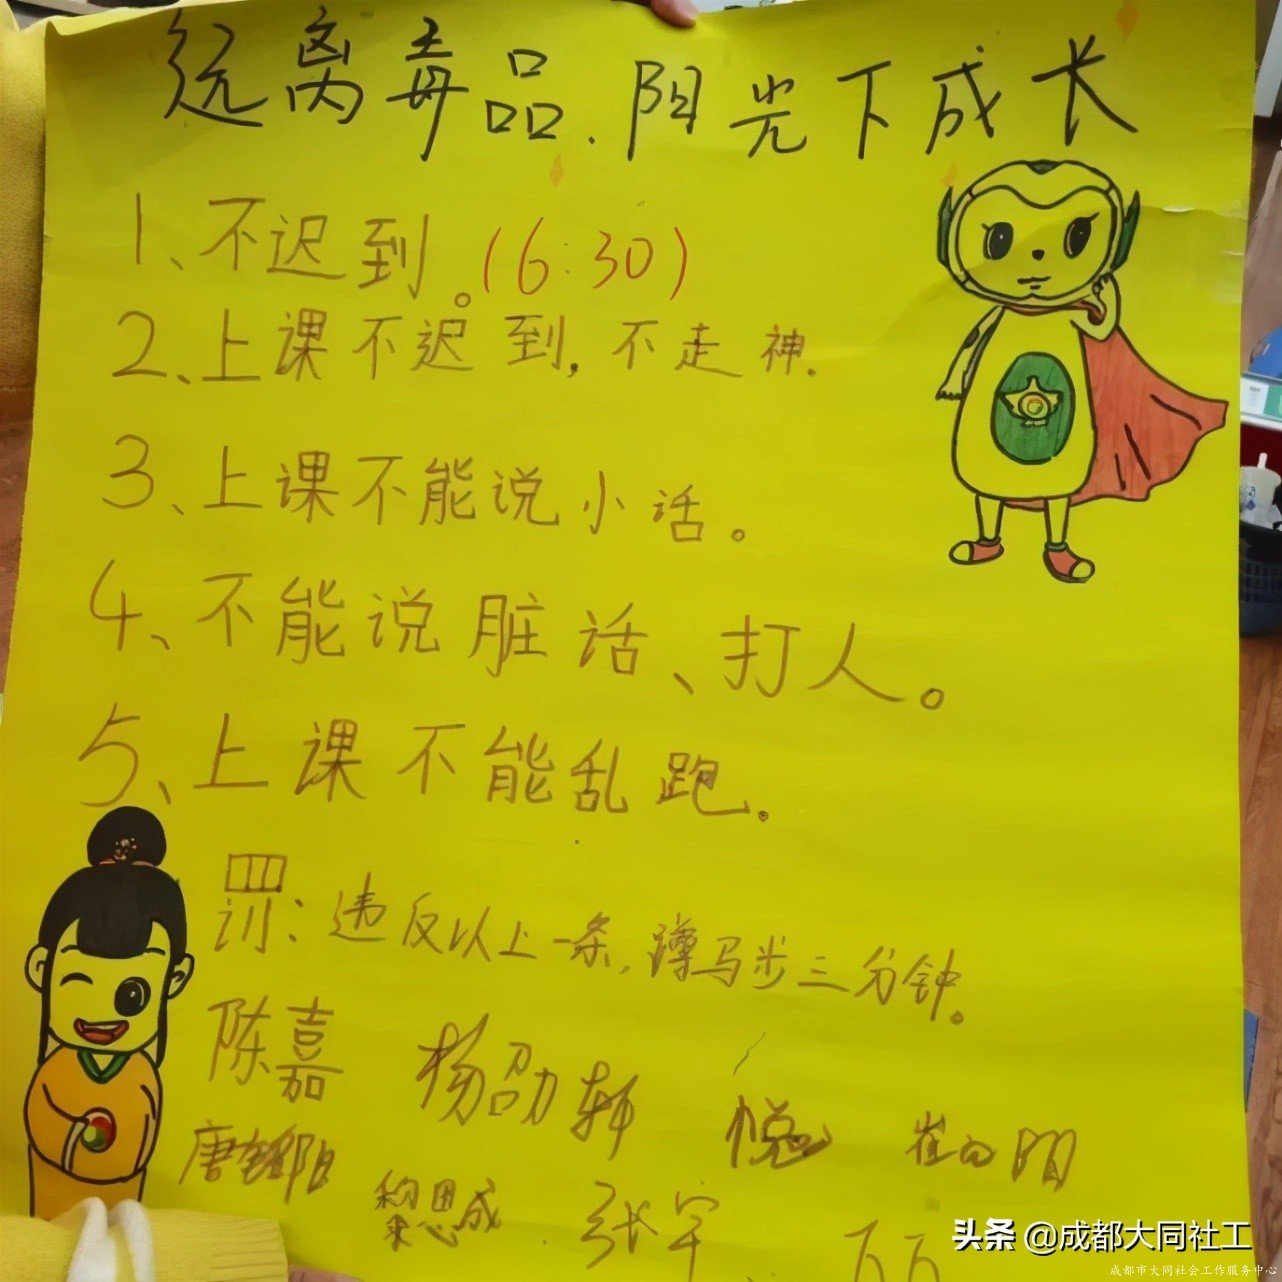 远离毒品.阳光下成长
1、不迟到。(6:30)
2、上课不迟到,不走神.
3、上课不能说小话。
4、不能说脏话、打人。
5、上课不能乱跑.
罚:违反以上一条,蹲马步三分钟。
陈嘉 杨邵轩 悦
唐 阳 黎思成 张军
头条 @成都大同社工
成都市大同社会工作服务中心